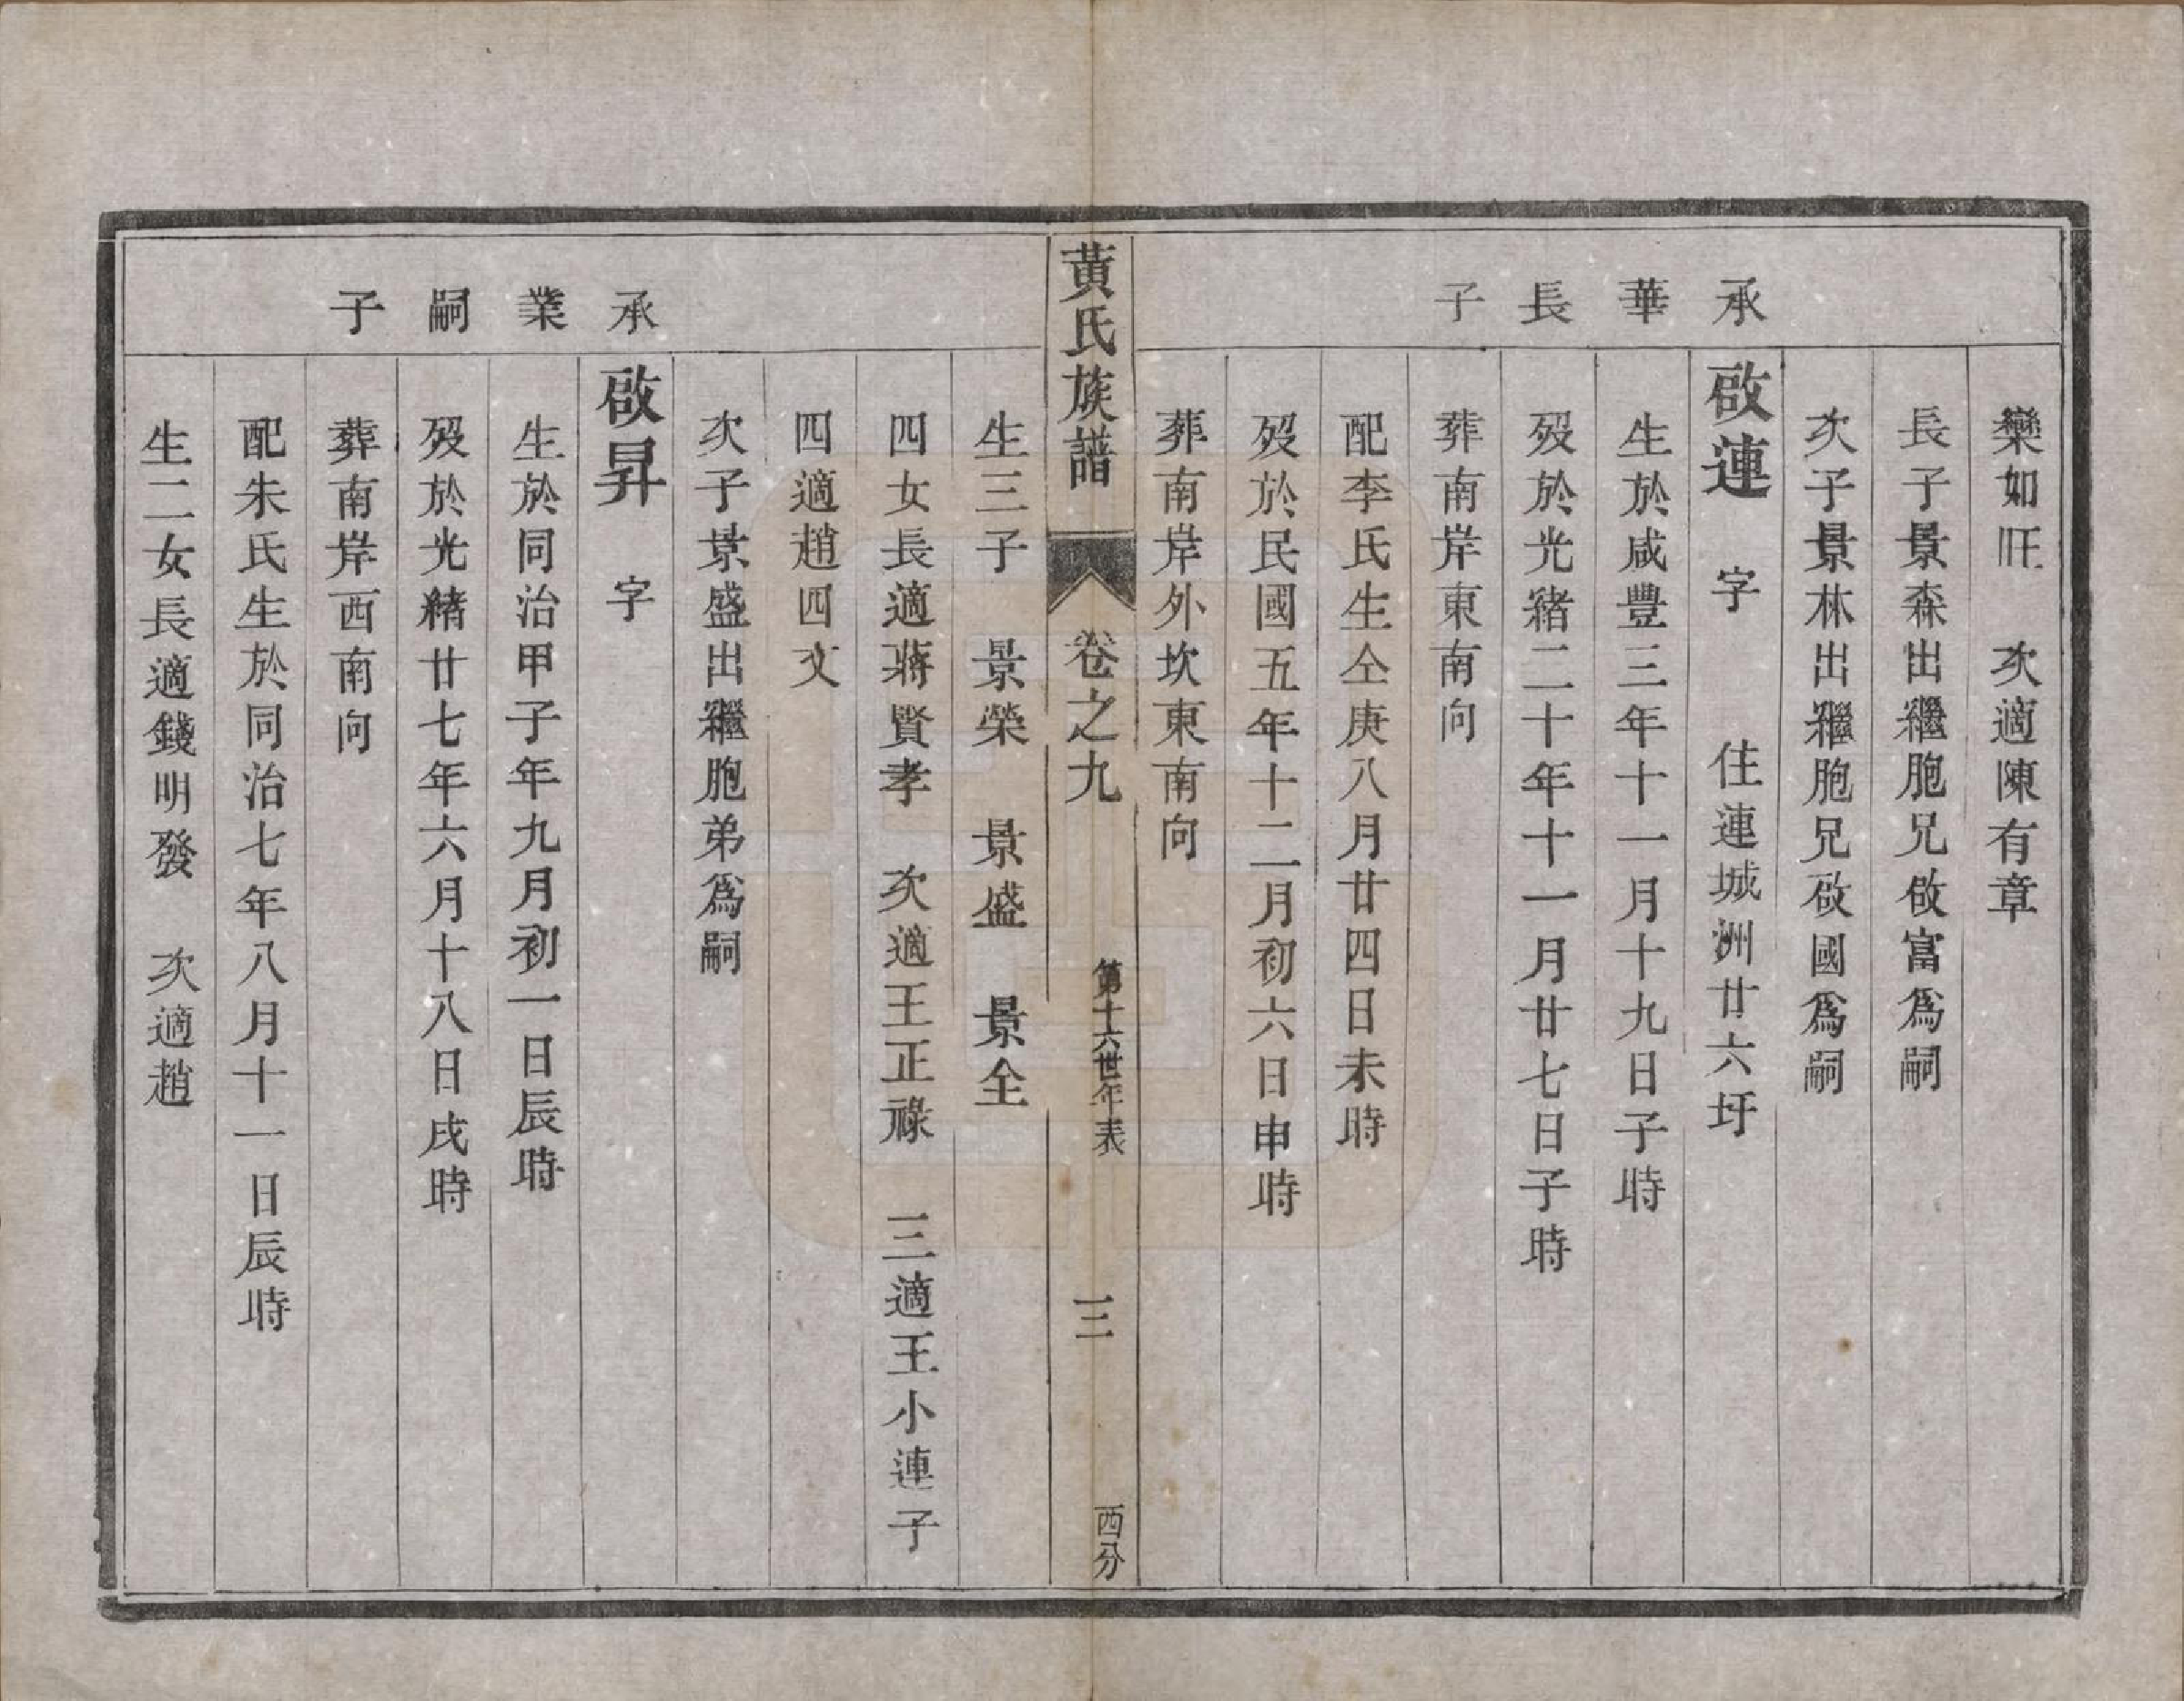 欒如旺　次適陳有章
長子景森出繼胞兄啟富爲嗣
次子景林出繼胞兄啟國爲嗣
承華長子
啟連　字　　住連城洲廿六圩
生於咸豐三年十一月十九日子時
歿於光緒二十年十一月廿七日子時
葬南岸東南向
配李氏生仝庚八月廿四日未時
歿於民國五年十二月初六日申時
葬南岸外坎東南向
黃氏族譜　卷之九　第十六世年表　三　西分
生三子　景榮　景盛　景全
四女長適蔣賢孝　次適王正祿　三適王小連子
四適趙四文
次子景盛出繼胞弟爲嗣
承業嗣子
啟昇　字
生於同治甲子年九月初一日辰時
歿於光緒廿七年六月十八日戌時
葬南岸西南向
配朱氏生於同治七年八月十一日辰時
生二女長適錢明發　次適趙